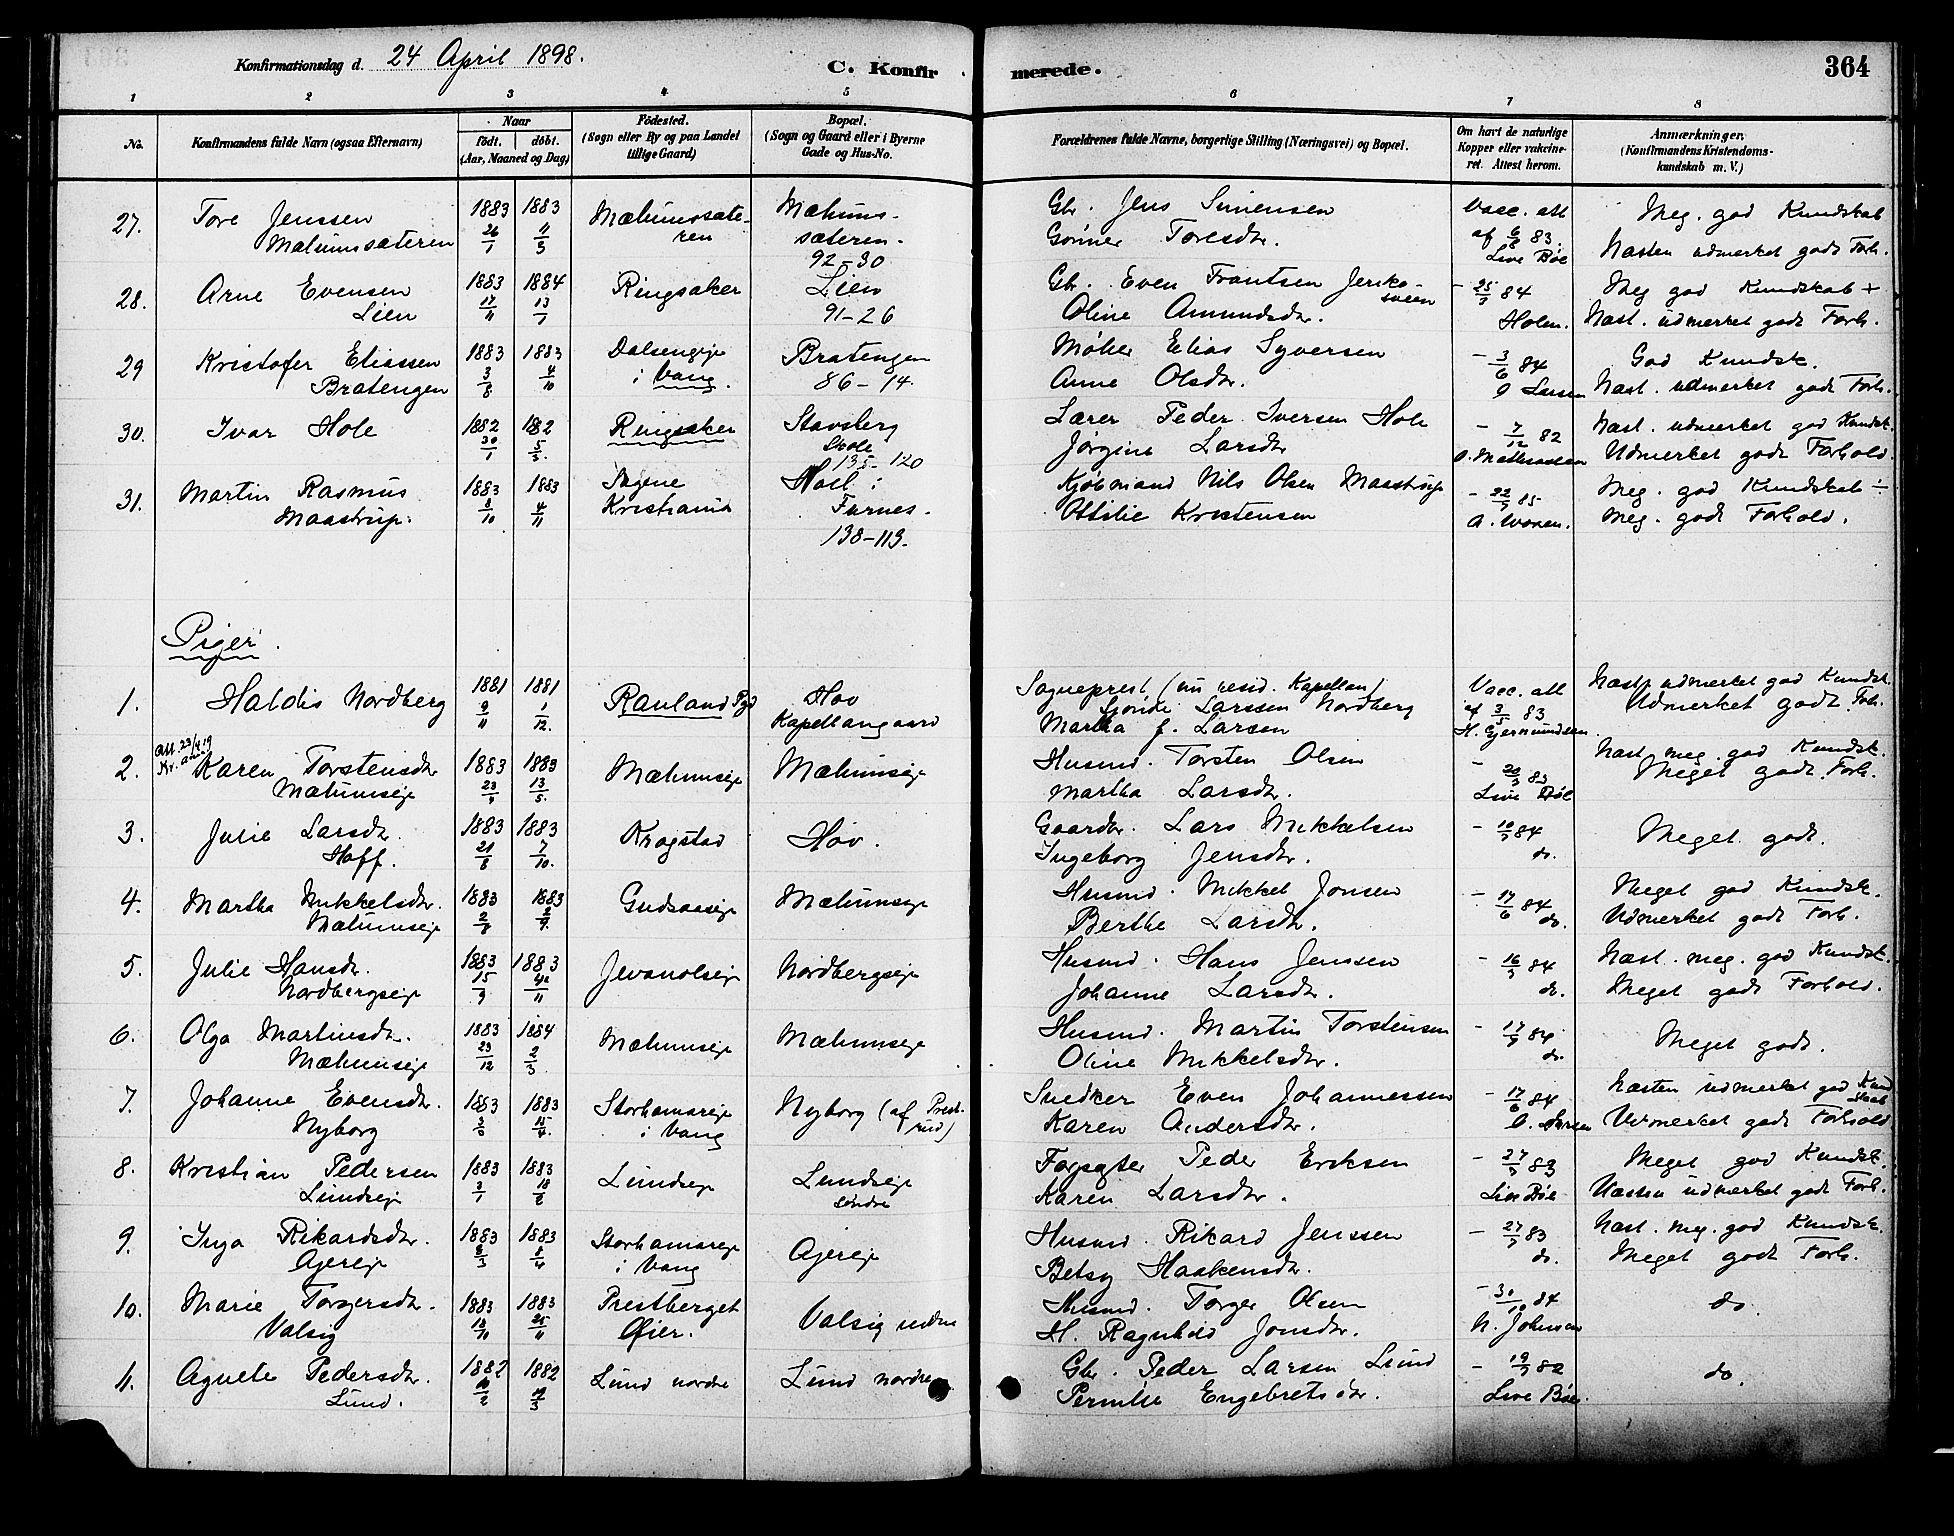 Konfirmationsdag d. 24 April 1898.
C. Konfirmerede.
364
1 2 3 4 5 6 7 8
No.
Konfirmandens fulde Navn (ogsaa Efternavn)
Naar
födt. döbt.
(Aar, Maaned og Dag)
Födested.
(Sogn eller By og paa Landet
tillige Gaard)
Bopæl.
(Sogn og Gaard eller i Byerne
Gade og Hus-No.
Forældrenes fulde Navne, borgerlige Stilling (Næringsvei) og Bopæl.
Om havt de naturlige
Kopper eller vakcine-
ret. Attest herom.
Anmærkninger.
(Konfirmandens Kristendoms-
kundskab m. V.)
27. Tore Jenssen 1883 1883 Mælumssæte- Mælums- Gbr. Jens Simensen Vacc. att Meg. god Kundskab
Mælumssæteren 26/1 11/3 ren sæteren. Gunner Toresdtr. af 6/6 83 Næsten udmerket godt Forh.
92-30 Live Böe
28. Arne Evensen 1883 1884 Ringsaker Lien Gbr. Even Frantsen Jerike- - 25/7 84 Meg god Kundskab +
Lien 17/11 13/1 91-26 Oline Amundsdtr. sveen Holm. Næst. udmerket godt Forh.
29 Kristofer Eliassen 1883 1883 Dalsengeje Bratengen Møller Elias Syversen - 3/6 84 God Kundsk.
Bratengen 3/8 4/10 i Vang. 86-14. Anne Olsdtr. O Larsen Næst. udmerket godt Forh.
30. Ivar Hole 1882 1882 Ringsaker Stavsberg Lærer Peder Iversen Hole - 7/12 82 Næst. udmerket god Kundsk.
30/1 5/3. Skole Jørgine Larsdtr O. Mathiassen Udmerket godt Forhold.
135-120
31. Martin Rasmus 1883 1883 Sagene Hoel i Kjøbmand Nils Olsen Maastrup - 22/7 85 Meg. god Kundskab ÷
Maastrup. 8/10 4/11 Kristiania Furnes. Ottilie Kristensen Meg. godt Forhold.
138-113.
Piger.
1. Haldis Nordberg 1881 1881 Rauland Pgd Hov Sogneprest (nu resid. Kapellan) Vacc. att Næst. udmerket god Kundsk.
9/11 1/12. Kapellangaard Sjønde Larssen Nordberg af 3/5 83 Udmerket godt Forh.
Martha f. Larsen H. Gjermundsen
Att. 23/4 19
Kr. a.
2. Karen Torstensdtr 1883 1883 Mælumseje Mælumseje Husmd. Torsten Olsen - 20/3 83 Næst. meg. god Kundsk.
Mælumseje 13/5. Martha Larsdtr. Live Böe Meget godt Forh.
3. Julie Larsdtr. 1883 1883 Kragstad Hov. Gaardbr. Lars Mikkelsen - 10/7 84 Meget godt.
Hoff. 21/8 7/10. Ingeborg Jensdtr. do.
4. Martha Mikkelsdtr. 1883 1883 Gudsaaseje Mælumseje Husmd. Mikkel Jonsen - 17/6 84 Meget god Kundsk.
Mælumseje 2/9. Berthe Larsdtr. do. Udmerket godt Forh.
5. Julie Hansdtr. 1883 1883 Jevanolseje Nordbergseje Husmd. Hans Jenssen - 16/5 84 Næst. meg. god Kundsk.
Nordbergseje 15/9 Johanne Larsdtr. do. Meget godt Forhold.
6. Olga Martinsdtr. 1883 1884 Mælumseje Mælumseje Husmd. Martin Torstensen - 17/7 84 Meget godt.
Mælumseje 23/12 2/3. Oline Mikkelsdtr. do.
7. Johanne Evensdtr. 1883 1883 Storhamareje Nyborg (af Prest- Snedker Even Johannessen - 17/6 84 Næsten udmerket god Kund
Nyborg 15/4. i Vang rud) Karen Andersdtr. O. Larsen skab Udmerket godt Forhold
8. Kristian Pedersen 1883 1883 Lundseje Lundseje Forpagter Peder Eriksen - 27/7 83 Meget god Kundsk.
Lundseje 3/1 18/2 søndre Karen Larsdtr. Live Böe Næsten udmerket godt Forh.
9. Inga Rikardsdtr. 1883 1883 Storhamareje Ajereje Husmd. Rikard Jenssen - 27/7 83 Næst. meg. god Kundsk.
Ajereje 8/3 8/4 i Vang Betsy Haakensdtr. do. Meget godt Forh.
10. Marie Torgersdtr. 1883 1883 Prestberget Valsig nedre Husmd. Torger Olsen - 30/10 84 do.
Valsig 18/10 25/11 Øier. H. Ragnhild Jonsdtr. N. Johnsen
11. Agnete Pedersdtr. 1882 1882 Lund nordre Lund nordre Gbr. Peder Larsen Lund - 19/7 82 do.
Lund. 19/3 Pernille Engebretsdtr. Live Böe.